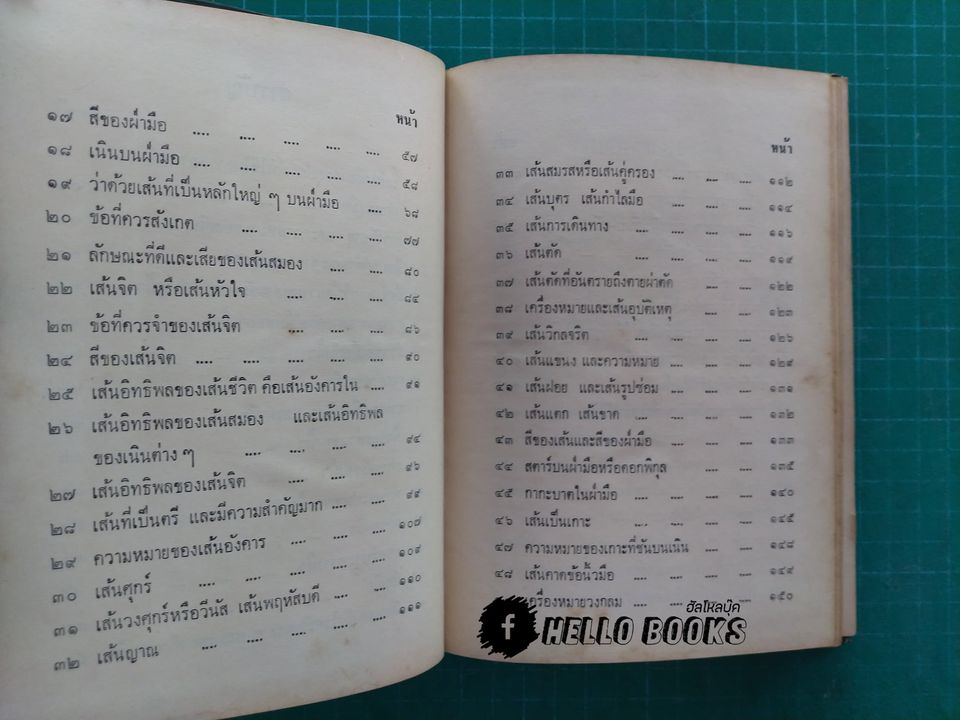 หน้า
๑๗ สีของฝ่ามือ .... .... .... .... .... ๕๗
๑๘ เนินบนฝ่ามือ .... .... .... .... .... ๕๘
๑๙ ว่าด้วยเส้นที่เป็นหลักใหญ่ ๆ บนฝ่ามือ .... ๖๘
๒๐ ข้อที่ควรสังเกต .... .... .... .... ๗๗
๒๑ ลักษณะที่ดีและเสียของเส้นสมอง .... .... ๘๐
๒๒ เส้นจิต หรือเส้นหัวใจ .... .... .... ๘๔
๒๓ ข้อที่ควรจำของเส้นจิต .... .... .... ๘๖
๒๔ สีของเส้นจิต .... .... .... .... .... ๙๐
๒๕ เส้นอิทธิพลของเส้นชีวิต คือเส้นอังคารใน .... ๙๑
๒๖ เส้นอิทธิพลของเส้นสมอง และเส้นอิทธิพล
ของเนินต่าง ๆ .... .... .... .... ๙๔
๒๗ เส้นอิทธิพลของเส้นจิต .... .... .... ๙๖
๒๘ เส้นที่เป็นตรี และมีความสำคัญมาก .... .... ๙๙
๒๙ ความหมายของเส้นอังคาร .... .... .... ๑๐๗
๓๐ เส้นศุกร์ .... .... .... .... .... ๑๐๙
๓๑ เส้นวงศุกร์หรือวีนัส เส้นพฤหัสบดี .... .... ๑๑๐
๓๒ เส้นญาณ .... .... .... .... .... ๑๑๑
หน้า
๓๓ เส้นสมรสหรือเส้นคู่ครอง .... .... .... ๑๑๒
๓๔ เส้นบุตร เส้นกำไลมือ .... .... .... ๑๑๔
๓๕ เส้นการเดินทาง .... .... .... .... ๑๑๖
๓๖ เส้นตัด .... .... .... .... .... ๑๑๙
๓๗ เส้นตัดที่อันตรายถึงตายผ่าตัด .... .... ๑๒๒
๓๘ เครื่องหมายและเส้นอุบัติเหตุ .... .... ๑๒๓
๓๙ เส้นวิกลจริต .... .... .... .... ๑๒๖
๔๐ เส้นแขนง และความหมาย .... .... .... ๑๒๙
๔๑ เส้นฝอย และเส้นรูปซ่อม .... .... .... ๑๓๑
๔๒ เส้นแตก เส้นขาด .... .... .... .... ๑๓๒
๔๓ สีของเส้นและสีของฝ่ามือ .... .... .... ๑๓๓
๔๔ สตาร์บนฝ่ามือหรือดอกพิกุล .... .... .... ๑๓๕
๔๕ กากะบาดในฝ่ามือ .... .... .... .... ๑๔๐
๔๖ เส้นเป็นเกาะ .... .... .... .... ๑๔๕
๔๗ ความหมายของเกาะที่ขึ้นบนเนิน .... .... .... ๑๔๘
๔๘ เส้นคาดข้อนิ้วมือ .... .... .... .... ๑๔๙
เครื่องหมายวงกลม .... .... .... .... ๑๕๐
ฮัลโหลบุ๊ค
f HELLO BOOKS